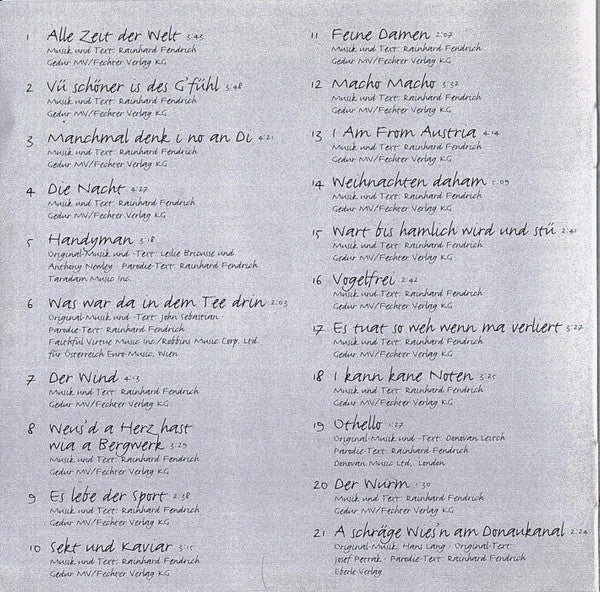 1 Alle Zeit der Welt 3:43
Musik und Text: Rainhard Fendrich
Gedur MV/Fechter Verlag KG
2 Vü schöner is des G'fühl 3:48
Musik und Text: Rainhard Fendrich
Gedur MV/Fechter Verlag KG
3 Manchmal denk i no an Di 4:21
Musik und Text: Rainhard Fendrich
Gedur MV/Fechter Verlag KG
4 Die Nacht 4:27
Musik und Text: Rainhard Fendrich
Gedur MV/Fechter Verlag KG
5 Handyman 3:18
Original-Musik und -Text: Leslie Bricusse und
Anthony Newley · Parodie-Text: Rainhard Fendrich
Taradam Music Inc.
6 Was war da in dem Tee drin 2:03
Original-Musik und -Text: John Sebastian ·
Parodie-Text: Rainhard Fendrich
Faithful Virtue Music Inc./Robbins Music Corp. Ltd.
für Österreich Euro-Music, Wien
7 Der Wind 4:13
Musik und Text: Rainhard Fendrich
Gedur MV/Fechter Verlag KG
8 Weus'd a Herz hast
wia a Bergwerk 3:29
Musik und Text: Rainhard Fendrich
Gedur MV/Fechter Verlag KG
9 Es lebe der Sport 2:38
Musik und Text: Rainhard Fendrich
Gedur MV/Fechter Verlag KG
10 Sekt und Kaviar 3:15
Musik und Text: Rainhard Fendrich
Gedur MV/Fechter Verlag KG
11 Feine Damen 2:07
Musik und Text: Rainhard Fendrich
Gedur MV/Fechter Verlag KG
12 Macho Macho 3:32
Musik und Text: Rainhard Fendrich
Gedur MV/Fechter Verlag KG
13 I Am From Austria 4:14
Musik und Text: Rainhard Fendrich
Gedur MV/Fechter Verlag KG
14 Weihnachten daham 5:09
Musik und Text: Rainhard Fendrich
Gedur MV/Fechter Verlag KG
15 Wart bis hamlich wird und stü
Musik und Text: Rainhard Fendrich
Gedur MV/Fechter Verlag KG
16 Vogelfrei 2:42
Musik und Text: Rainhard Fendrich
Gedur MV/Fechter Verlag KG
17 Es tuat so weh wenn ma verliert 3:27
Musik und Text: Rainhard Fendrich
Gedur MV/Fechter Verlag KG
18 I kann kane Noten 3:25
Musik und Text: Rainhard Fendrich
Gedur MV/Fechter Verlag KG
19 Othello 1:27
Original-Musik und -Text: Donovan Leitch
Parodie-Text: Rainhard Fendrich
Donovan Music Ltd., London
20 Der Wurm 1:30
Musik und Text: Rainhard Fendrich
Gedur MV/Fechter Verlag KG
21 A schräge Wies'n am Donaukanal 2:24
Original-Musik: Hans Lang · Original-Text
Josef Petrak · Parodie-Text: Rainhard Fendrich
Eberle-Verlag